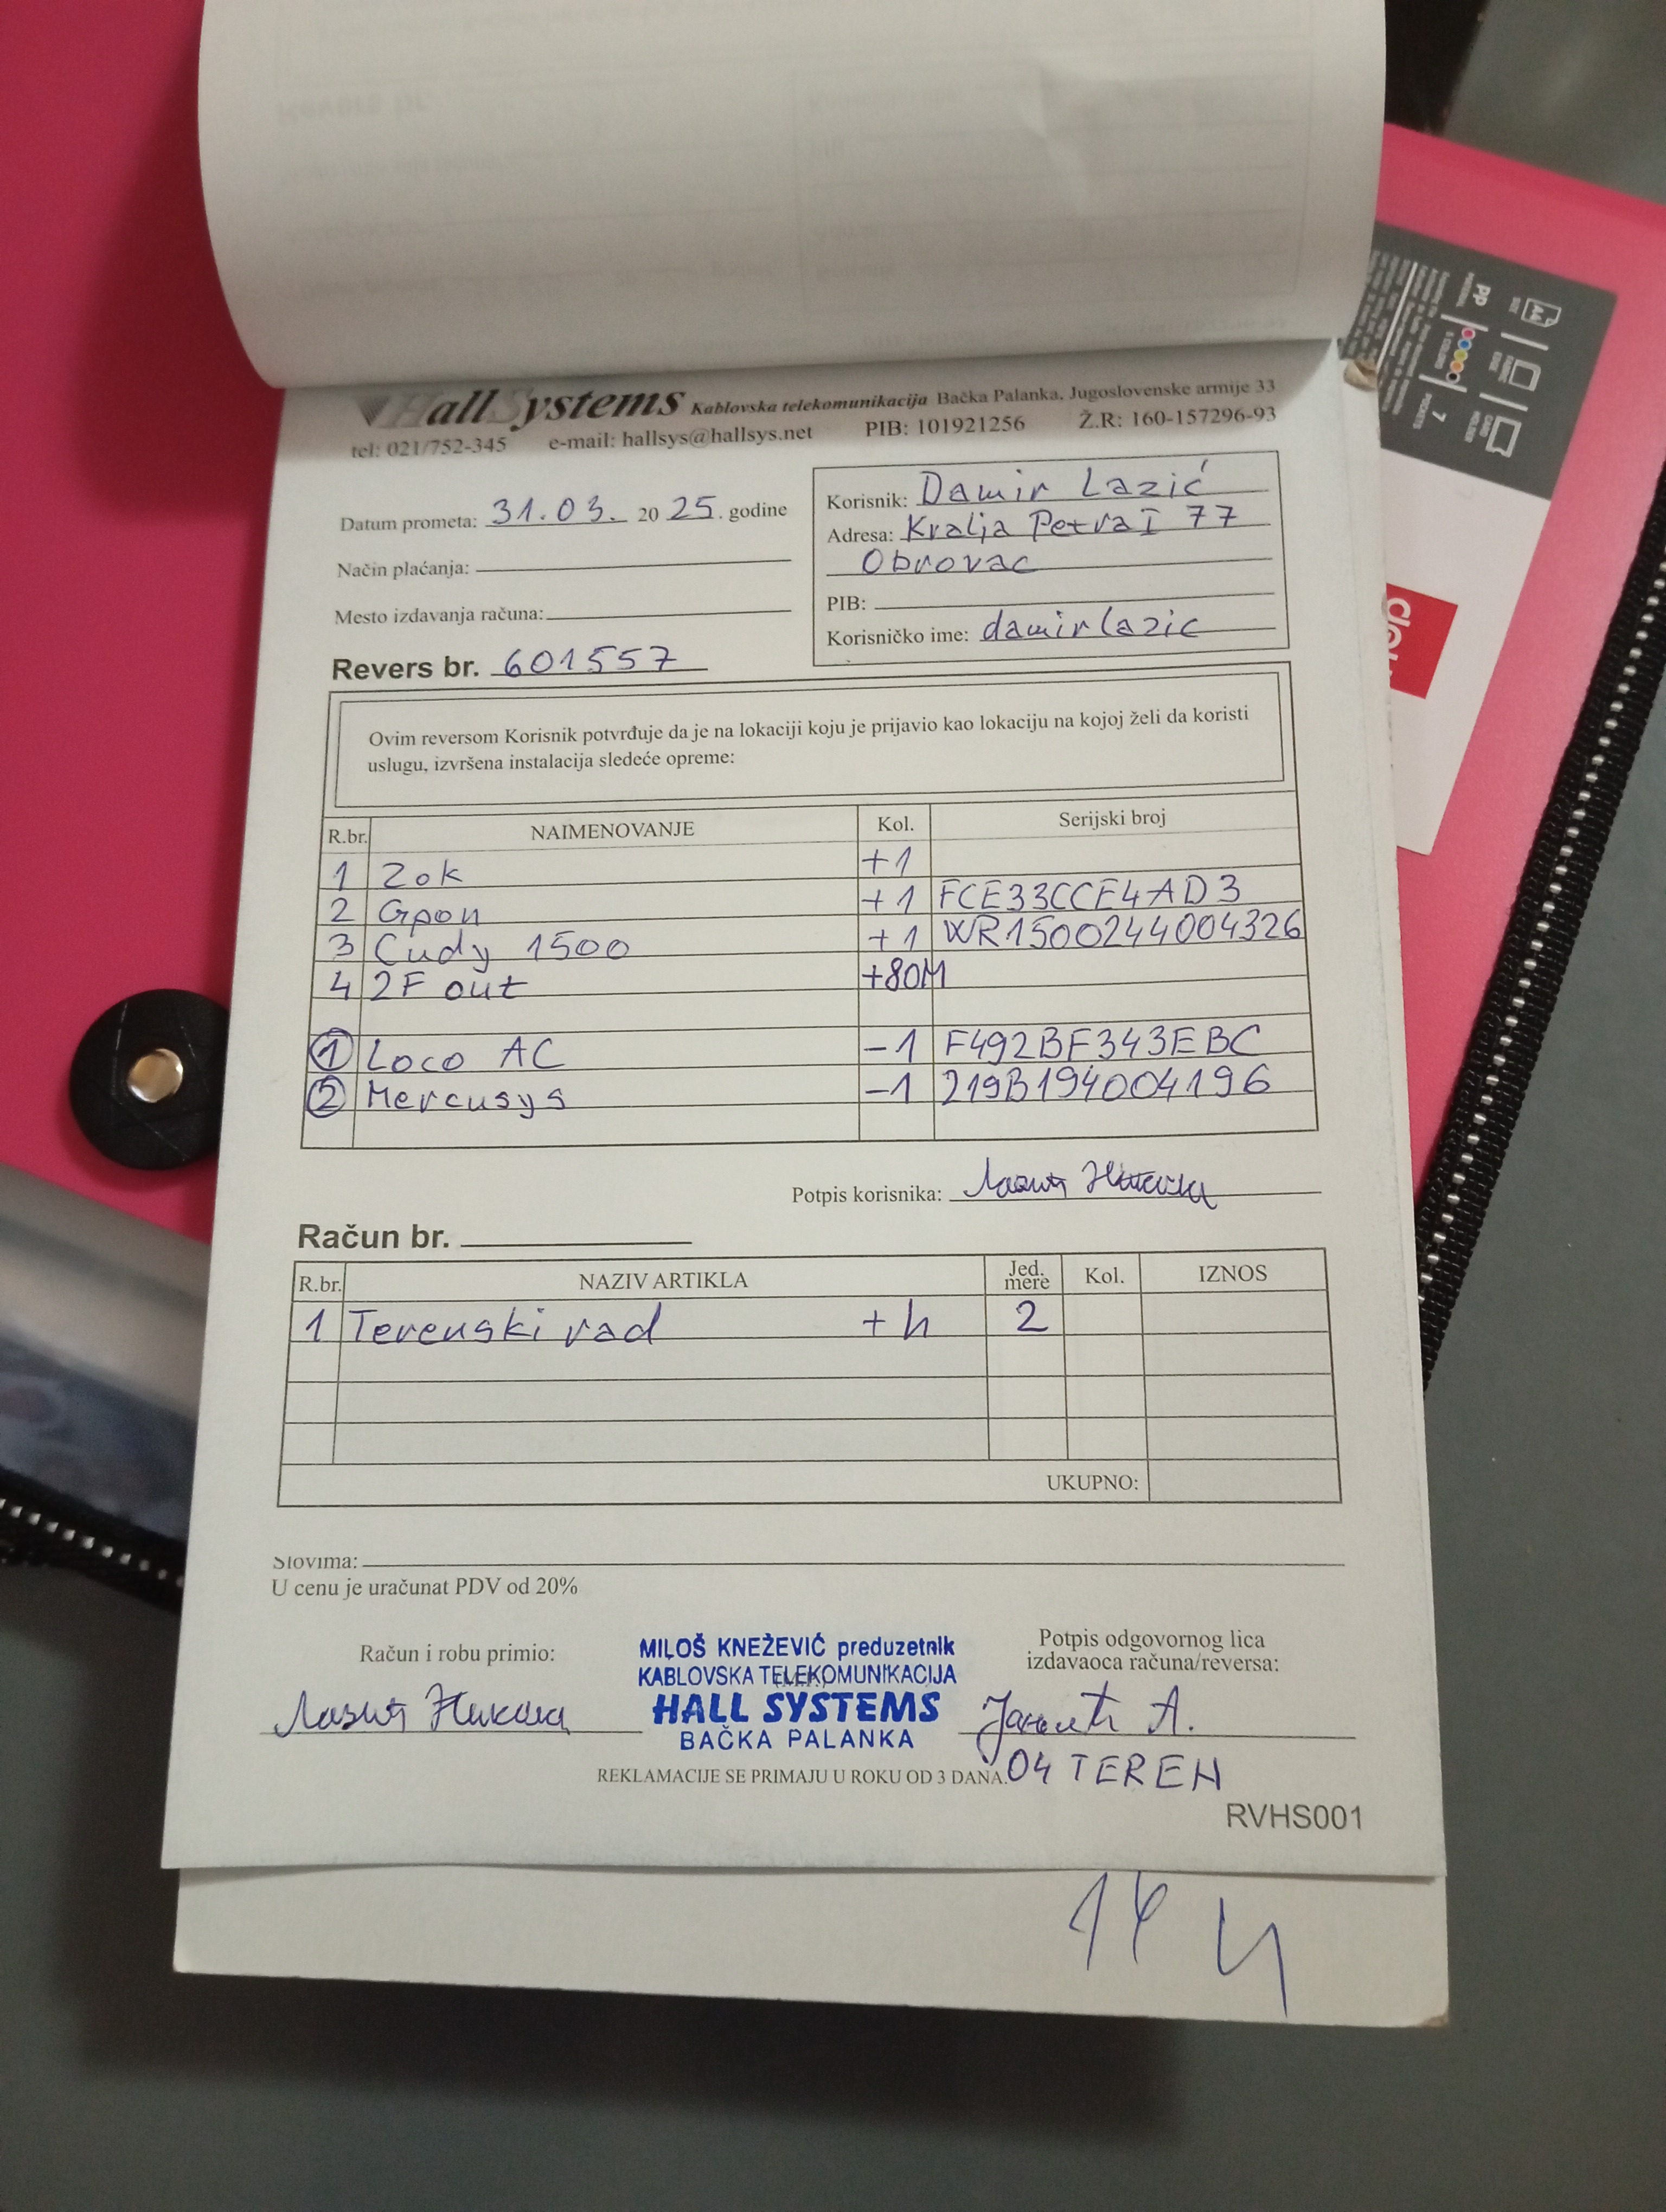 Hall Systems Kablovska telekomunikacija Bačka Palanka, Jugoslovenske armije 33
tel: 021/752-345 e-mail: hallsys@hallsys.net PIB: 101921256 Ž.R: 160-157296-93
Datum prometa: 31.03. 2025. godine
Način plaćanja:
Mesto izdavanja računa:
Revers br. 601557
Korisnik: Damir Lazić
Adresa: Kralja Petra I 77
Obrovac
PIB:
Korisničko ime: damirlazic
Ovim reversom Korisnik potvrđuje da je na lokaciji koju je prijavio kao lokaciju na kojoj želi da koristi
uslugu, izvršena instalacija sledeće opreme:
R.br. NAIMENOVANJE Kol. Serijski broj
1 Zok +1
2 Gpon +1 FCE33CCE4AD3
3 Cudy 1500 +1 WR1500244004326
4 2F out +80M
1 Loco AC -1 F492BF343EBC
2 Mercusys -1 219B194004196
Potpis korisnika:
Račun br.
R.br. NAZIV ARTIKLA Jed. mere Kol. IZNOS
1 Terenski rad +h 2
UKUPNO:
Slovima:
U cenu je uračunat PDV od 20%
Račun i robu primio:
MILOŠ KNEŽEVIĆ preduzetnik
KABLOVSKA TELEKOMUNIKACIJA
HALL SYSTEMS
BAČKA PALANKA
Potpis odgovornog lica
izdavaoca računa/reversa:
REKLAMACIJE SE PRIMAJU U ROKU OD 3 DANA.
04 TEREH
RVHS001
PP
A4